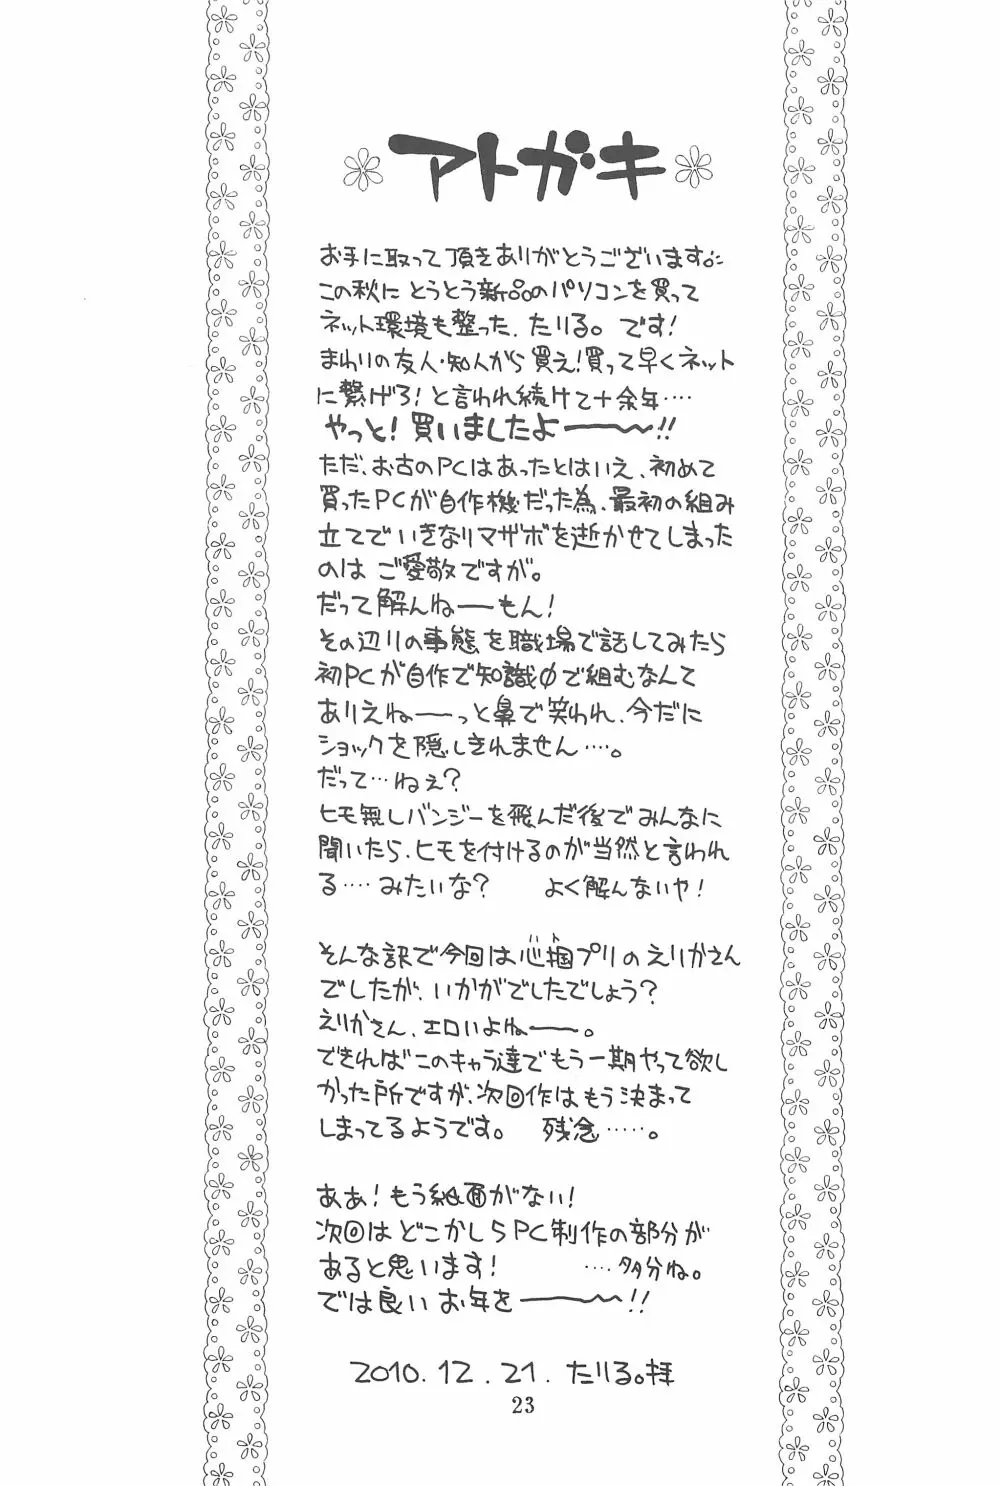 アトガキ
お手に取って頂きありがとうございます。
この秋に とうとう新品のパソコンを買って
ネット環境も整った、たりる。です!
まわりの友人・知人から 買え!買って早くネット
に繋げろ!と言われ続けて十余年‥‥
やっと!買いましたよーー〜〜!!
ただ、お古のPCはあったとはいえ、初めて
買ったPCが自作機だった為、最初の組み
立てでいきなりマザボを逝かせてしまった
のは ご愛敬ですが。
だって解んねーーもん!
その辺りの事態を職場で話してみたら
初PCが自作で知識φで組むなんて
ありえねーーっと鼻で笑われ、今だに
ショックを隠しきれません‥‥。
だって‥ねぇ?
ヒモ無しバンジーを飛んだ後でみんなに
聞いたら、ヒモを付けるのが当然と言われ
る‥‥みたいな? よく解んないヤ!
そんな訳で今回は心掴プリのえりかさん
でしたが、いかがでしたでしょう?
えりかさん、エロいよねーー。
できればこのキャラ達でもう一期やって欲し
かった所ですが、次回作はもう決まって
しまってるようです。 残念‥‥‥。
ああ!もう紙面がない!
次回はどこかしらPC制作の部分が
あると思います! ‥‥多分ね。
では良いお年をーー〜〜!!
2010.12.21.たりる。拝
23